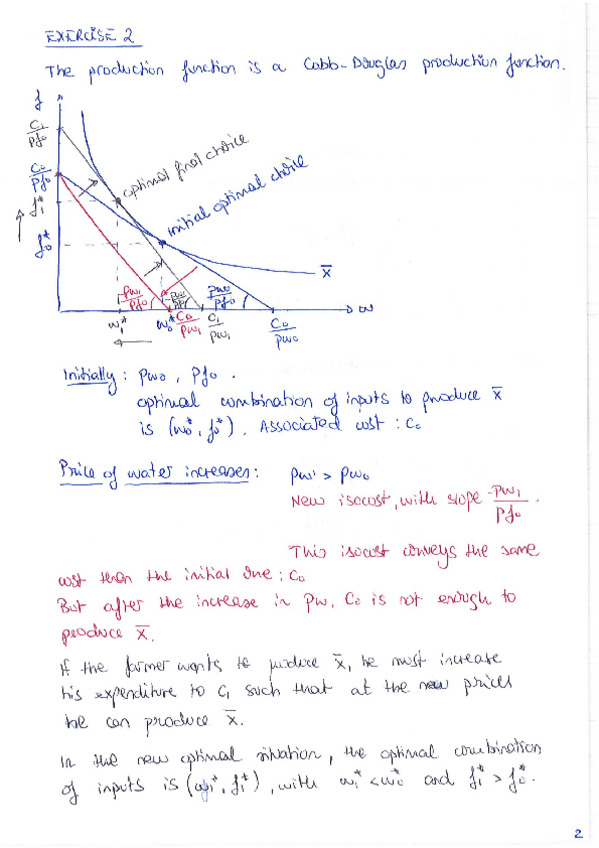 EXERCISE 2
The production function is a Cobb-Douglas production function.
f
C₁/Pf₀
C₀/Pf₀
f₁*
f₀*
optimal final choice
initial optimal choice
x̄
-Pw₁/Pf₀
-Pw₁/Pf₀
-Pw₀/Pf₀
w
w₁*
w₀*
C₀/Pw₁
C₁/Pw₁
C₀/Pw₀
Initially : Pw₀, Pf₀.
optimal combination of inputs to produce x̄
is (w₀*, f₀*). Associated cost : C₀
Price of water increases : Pw₁ > Pw₀
New isocost, with slope -Pw₁/Pf₀.
This isocost conveys the same
cost then the initial one : C₀
But after the increase in Pw, C₀ is not enough to
produce x̄.
If the farmer wants to produce x̄, he must increase
his expenditure to C₁ such that at the new prices
he can produce x̄.
In the new optimal situation, the optimal combination
of inputs is (w₁*, f₁*), with w₁* < w₀* and f₁* > f₀*.
2